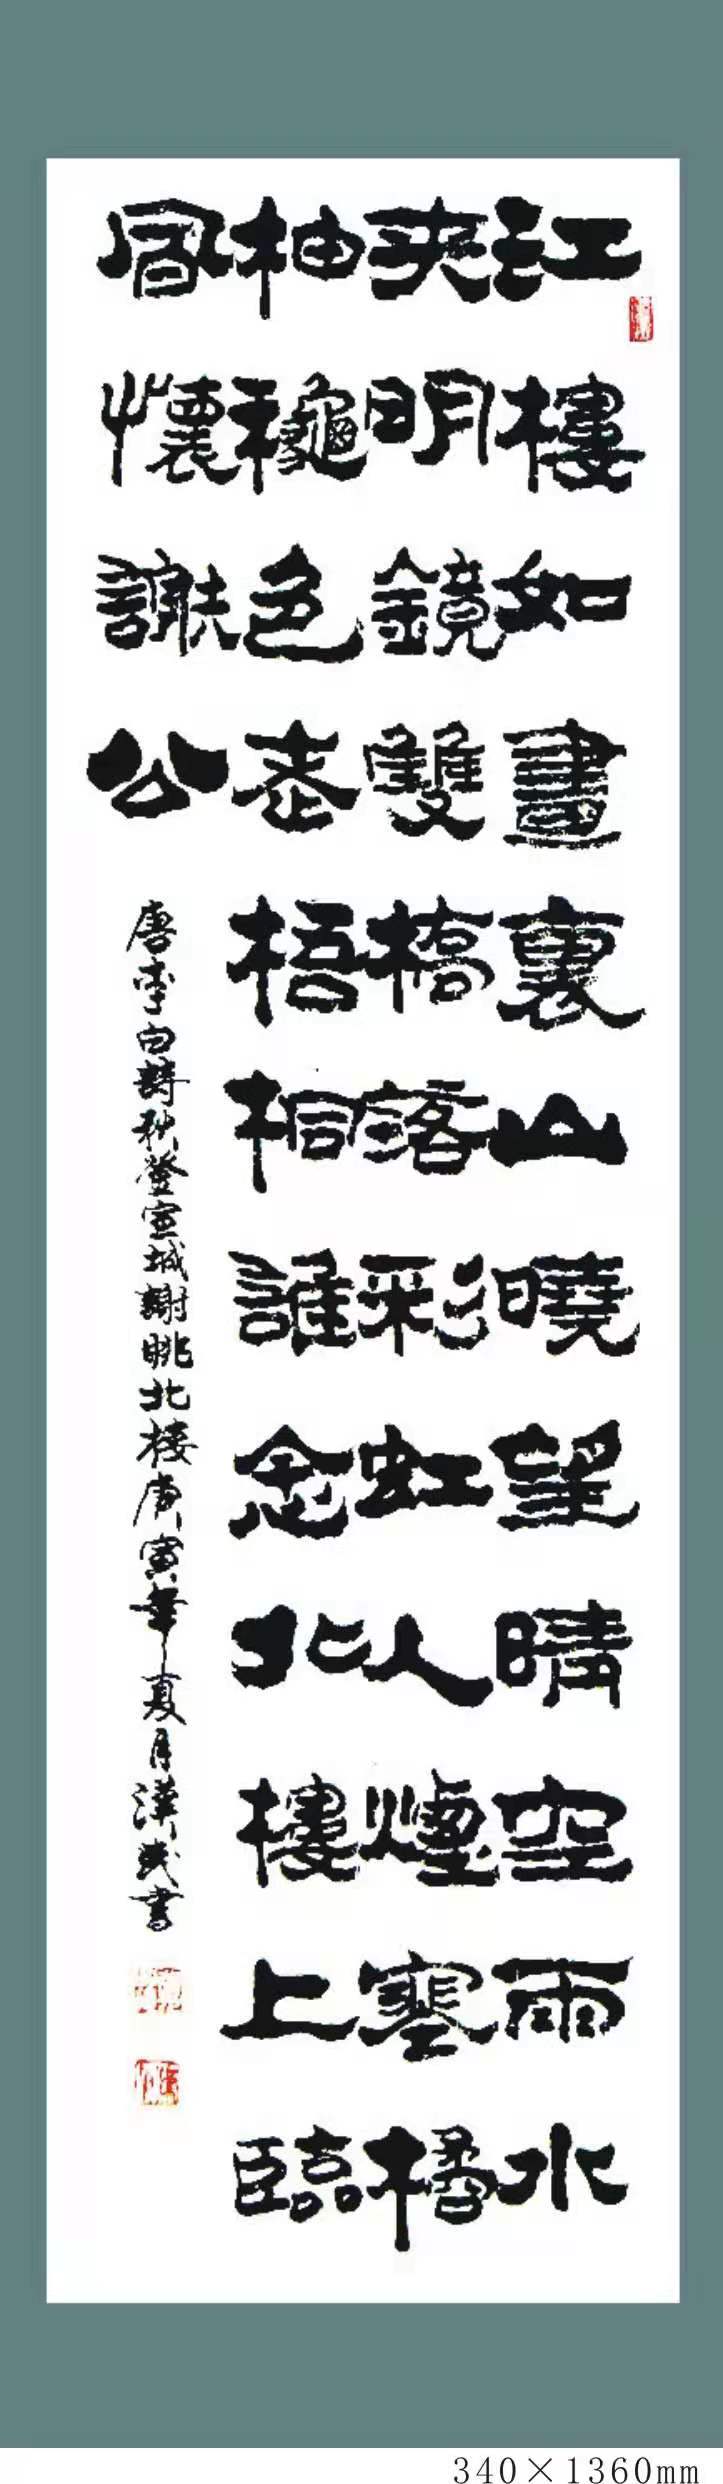 江樓如畫裏山曉望晴空兩水
夾明鏡雙橋落彩虹人煙寒橘
柚穐色老梧桐誰念北樓上臨
風懷謝公
唐李白詩秋登宣城謝眺北楼庚寅年夏月漢武書
340×1360mm